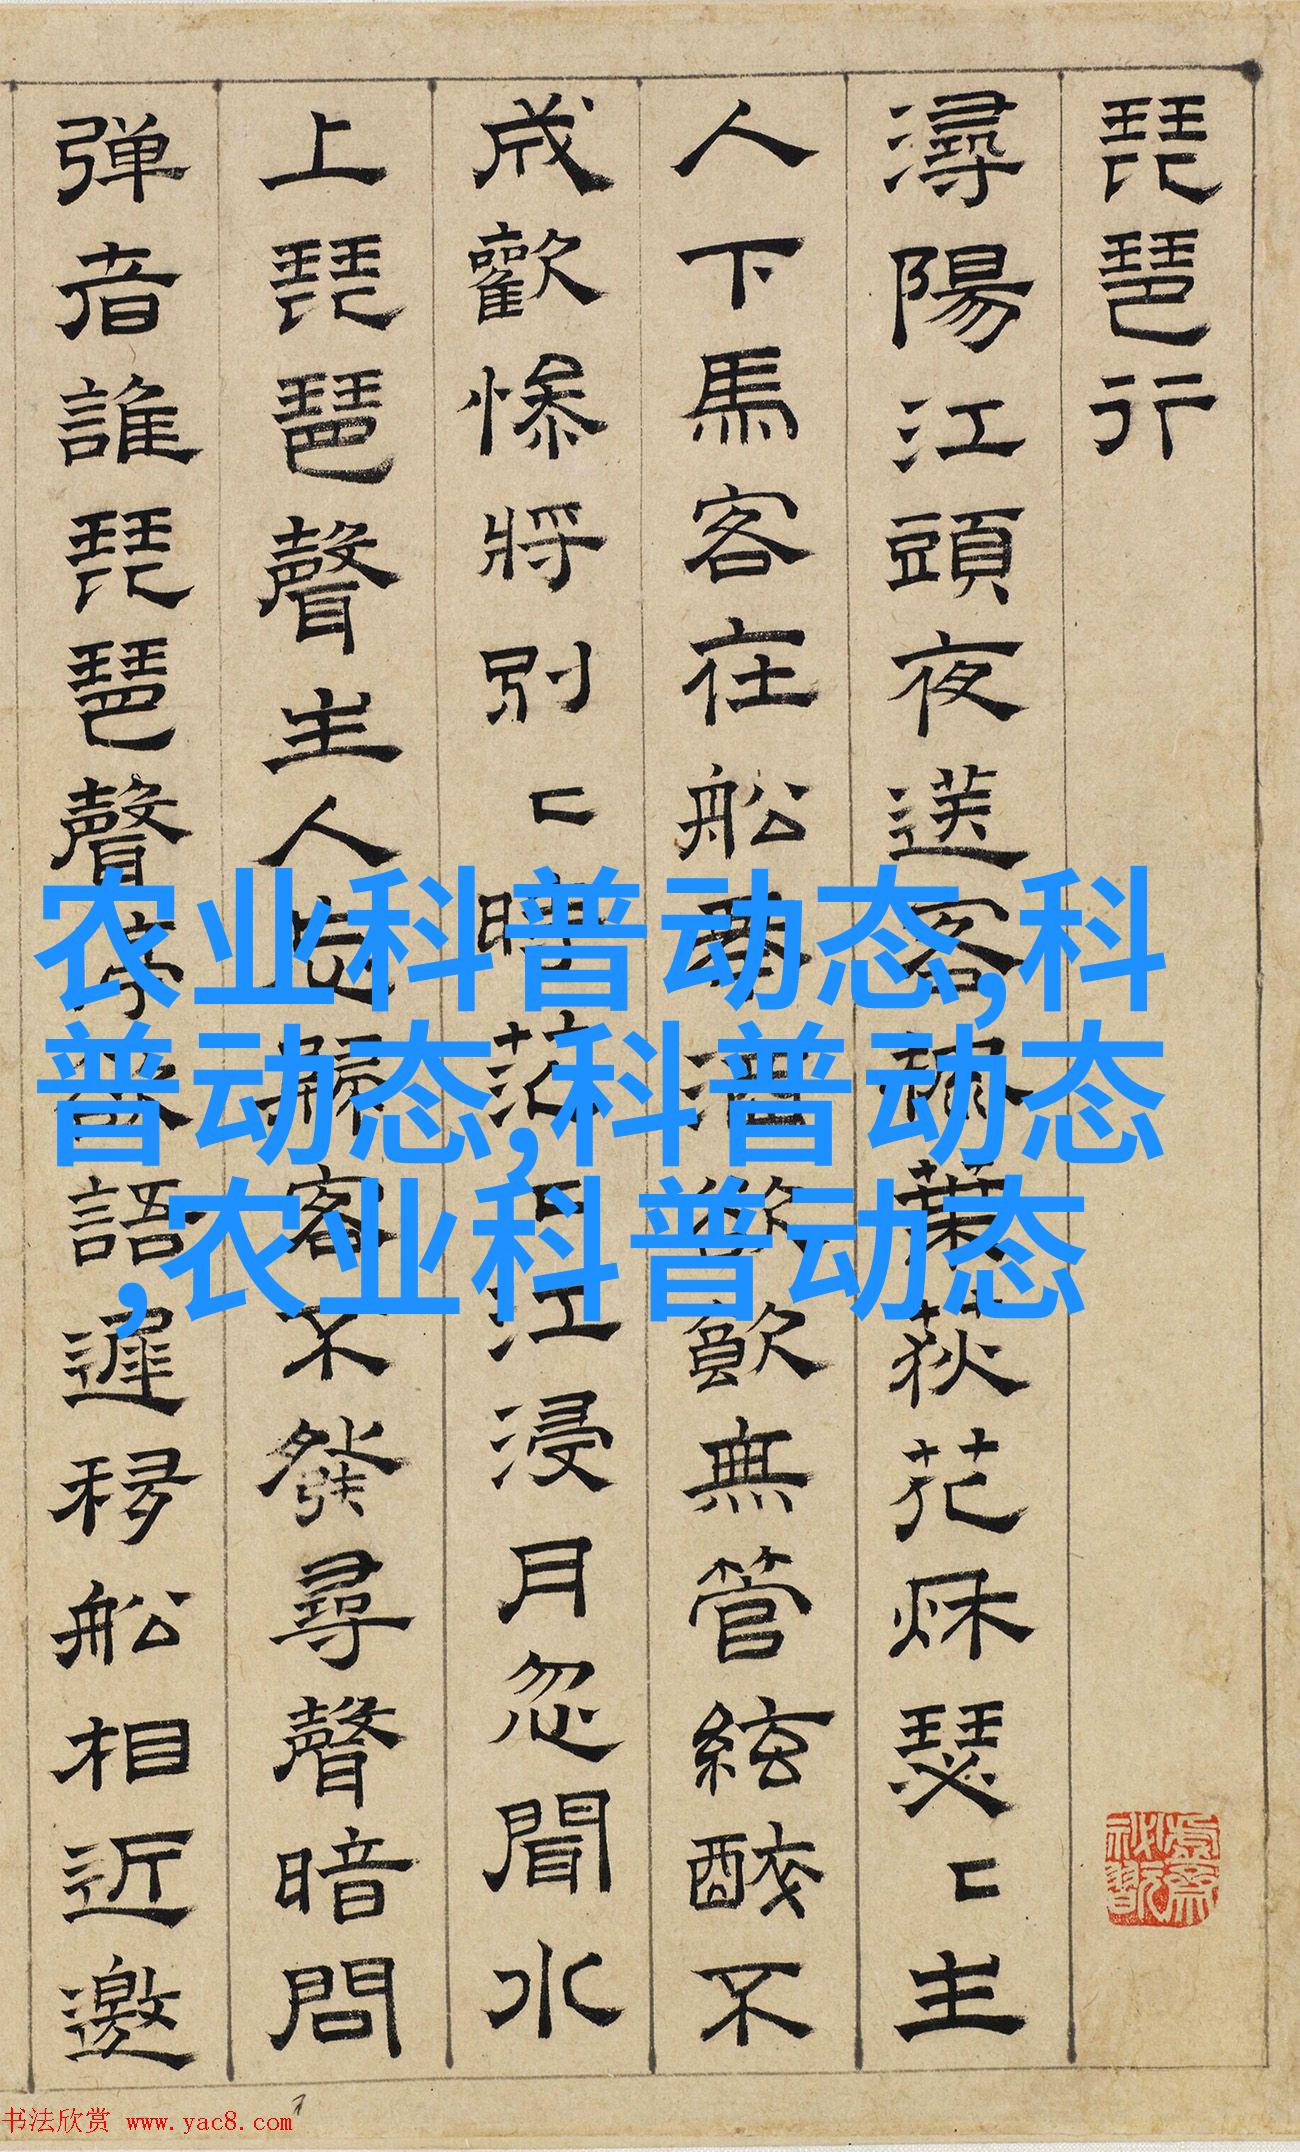 琵琶行
潯陽江頭夜送客楓葉荻花秌瑟〻主
人下馬客在船舉酒欲飲無管絃醉不
成歡慘將別〻時茫〻江浸月忽聞水
上琵琶聲主人忘歸客不發尋聲暗問
弹者誰琵琶聲停欲語遲移船相近邀
农业科普动态,科
普动态,科普动态
,农业科普动态
书法欣赏 www.yac8.com